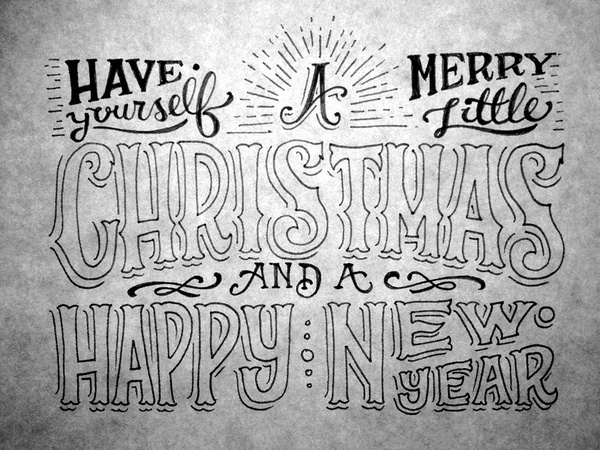 HAVE yourself A MERRY Little
CHRISTMAS
AND A
HAPPY NEW YEAR